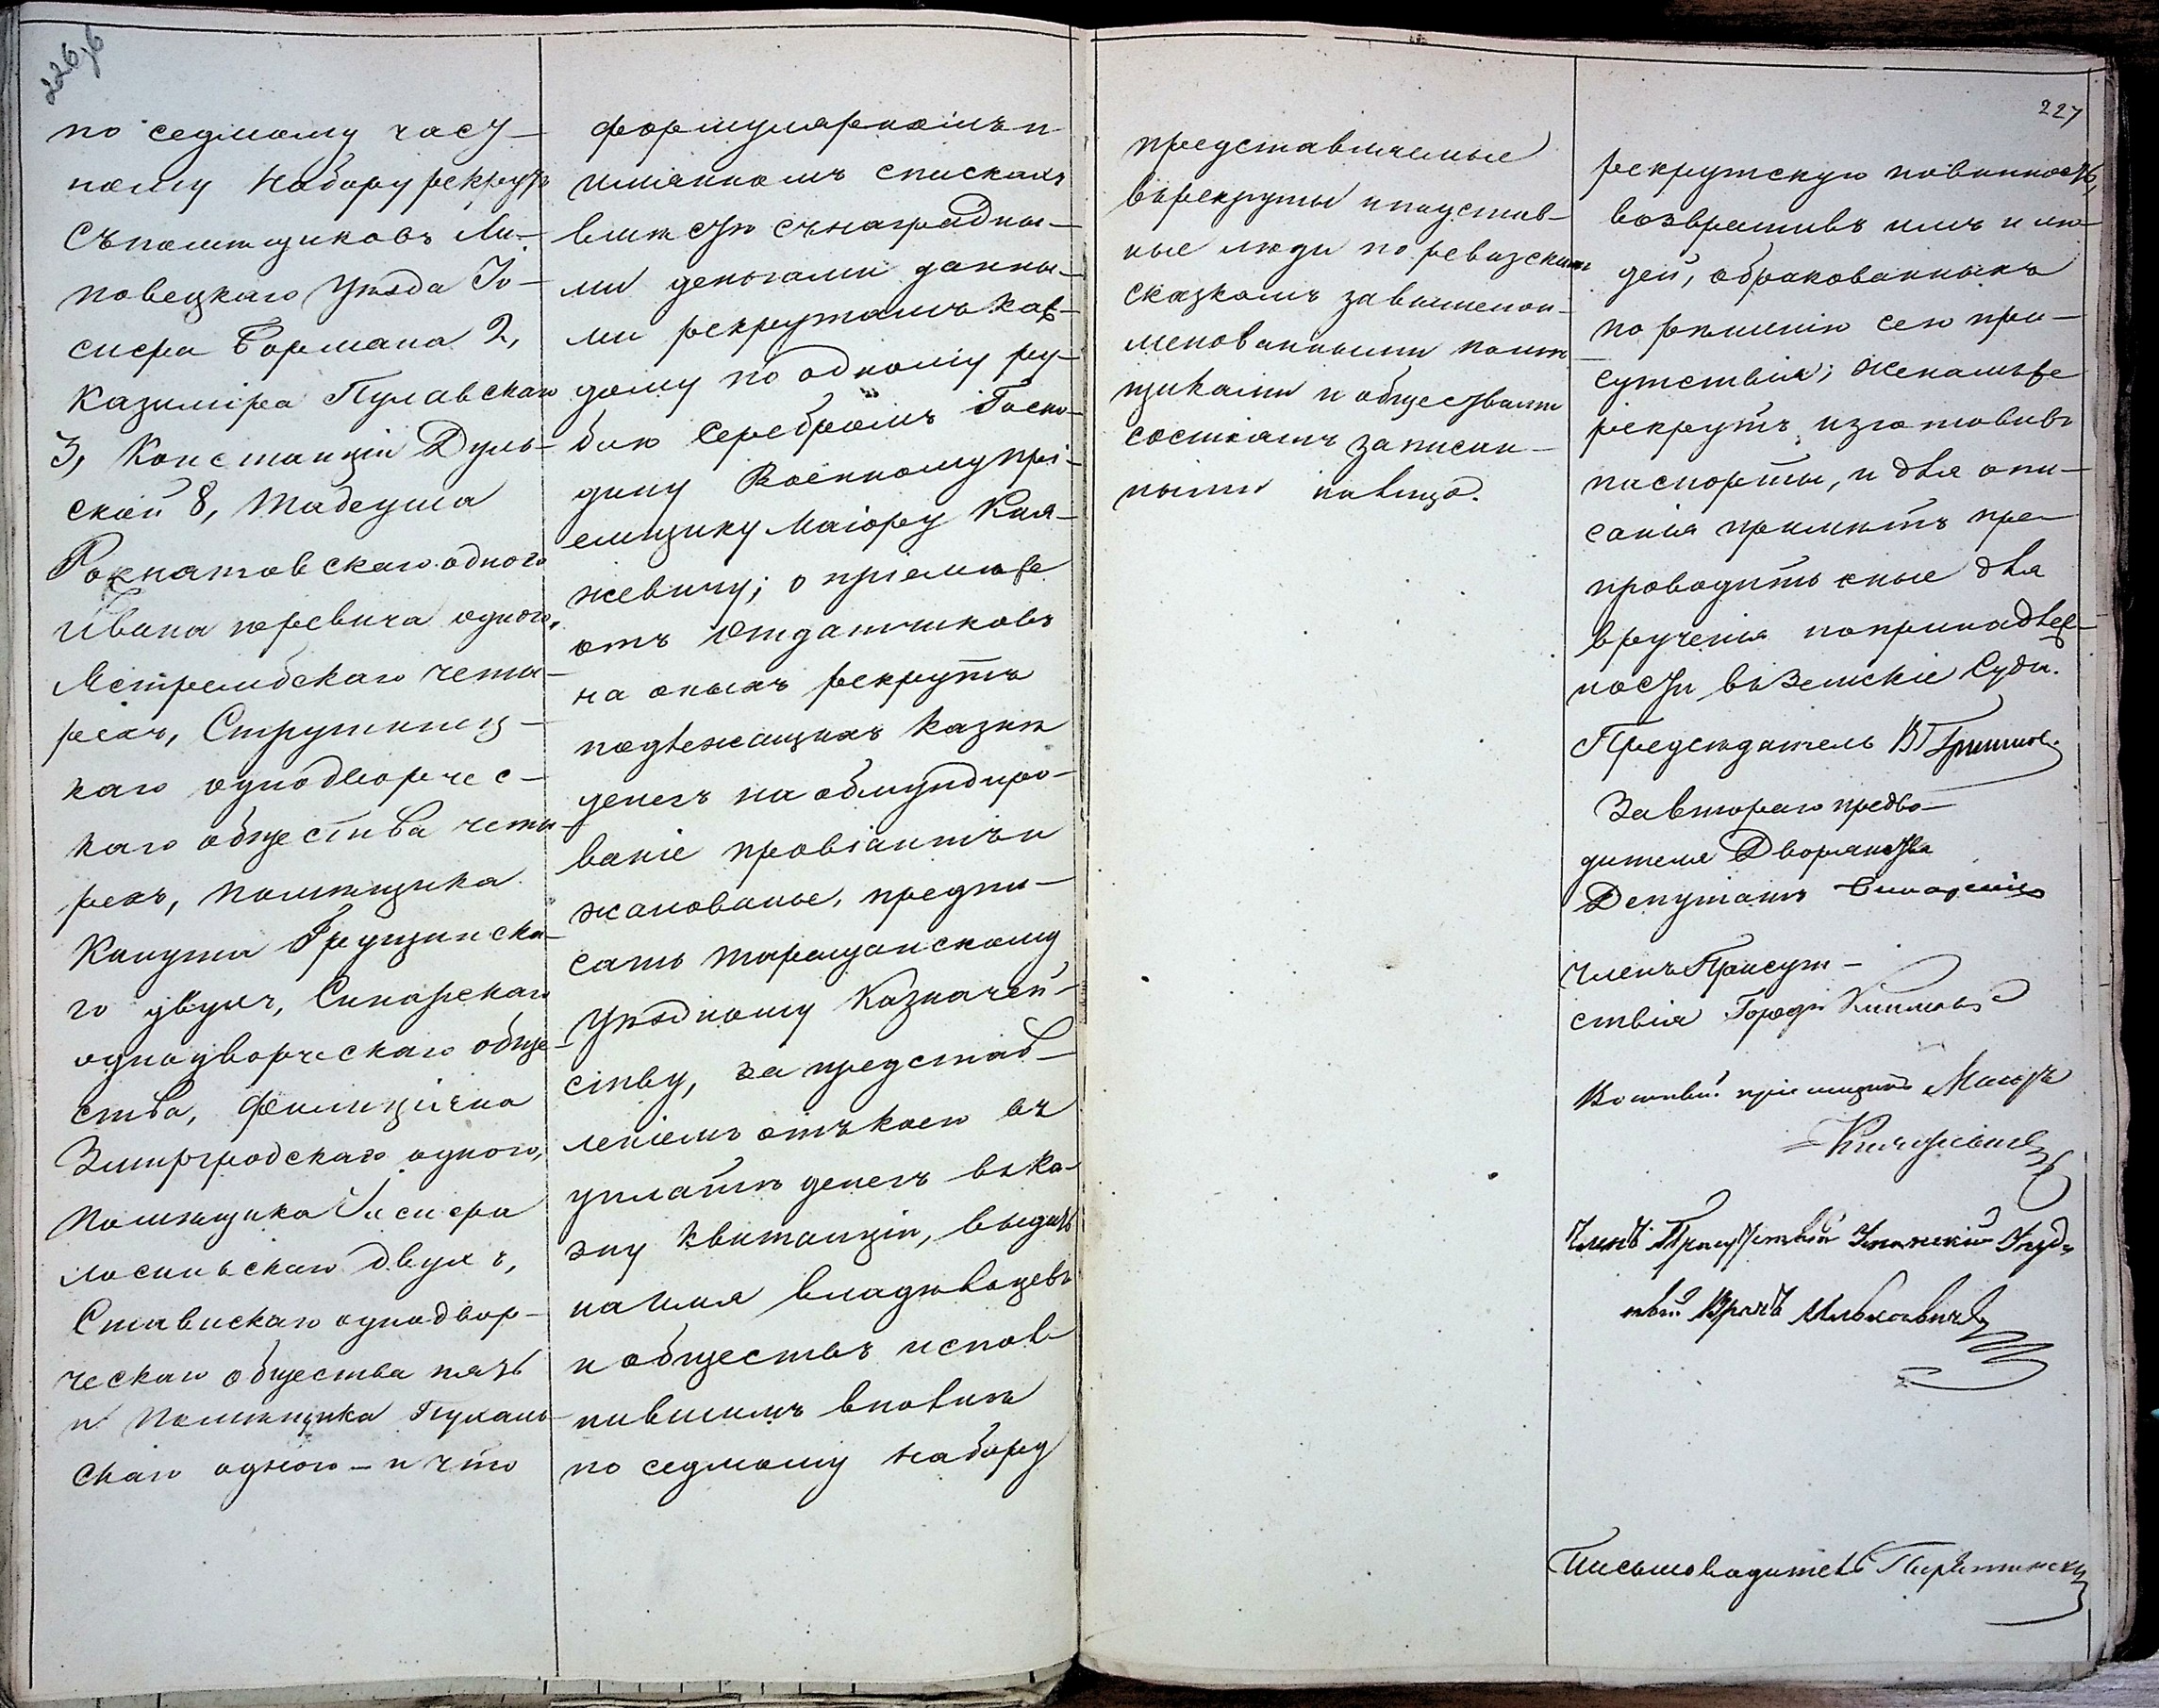 226,б
по седмому част-
ному набору рекрутъ
съ помѣщиковъ Ли-
повецкаго Уѣзда Іо-
сифа Бормана 2,
Казиміра Пулавскаго
3, Констанціи Дуль-
ской 8, Тадеуша
Рохнатовскаго одного
Ивана юревича одного,
Ястрембскаго четы-
рехъ, Струтинец-
каго однодворчес-
каго общества четы-
рехъ, помѣщика
Канута Грущинска-
го двухъ, Ситарскаго
однодворческаго обще-
ства, Фелиціяна
Змигродскаго одного,
Помѣщика Іосифа
Лосинскаго двухъ,
Ставискаго однодвор-
ческаго общества пять
и Помѣщика Пулав-
скаго одного - и что
формулярнымъ и
имяннымъ спискамъ
вмѣстѣ съ наградны-
ми деньгами данны-
ми рекрутамъ каж-
дому по одному ру-
блю Серебромъ Госпо-
дину Военному прі-
емщику Маіору Кня-
жевичу; о пріемѣ же
отъ Отдатчиковъ
на оныхъ рекрутъ
подлежащихъ казнѣ
денегъ на обмундиро-
ваніе провіантъ и
жалованье, предпи-
сать таращанскому
Уѣздному Казначей-
ству, за представ-
леніемъ отъ коего въ
уплатѣ денегъ въ ка-
зну квитанціи, выдать
на имя владѣльцевъ
и обществъ испол-
нившимъ вполнѣ
по седмому набору
представляемые
въ рекруты и подстав-
ные люди по ревизскимъ
сказкамъ за вышепои-
менованными помѣ-
щиками и обществами
состоятъ записан-
ными налицо.
227
рекрутскую повинность,
возвративъ имъ и лю-
дей, обракованныхъ
по рѣшенію сего при-
сутствія; женамъ же
рекрутъ изготовивъ
паспорты, и для опи-
санія примѣтъ пре-
проводить оные для
врученія по принадлеж-
ности въ Земскіе Суды.
Предсѣдатель
За втораго предво-
дителя Дворянства
Депутатъ
Членъ Присут-
ствія Город
Военный пріемщикъ Маіоръ
Княжевичъ
Членъ Присутствія Уманскій Уѣзд-
ный Врачъ
Письмоводитель